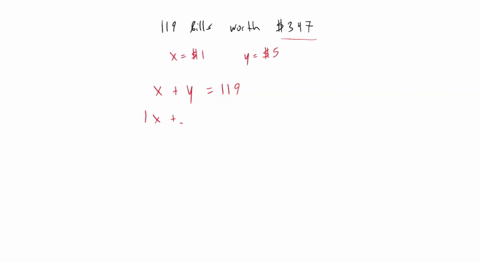 119 Bills worth $347
x = $1 y = $5
x + y = 119
1x +